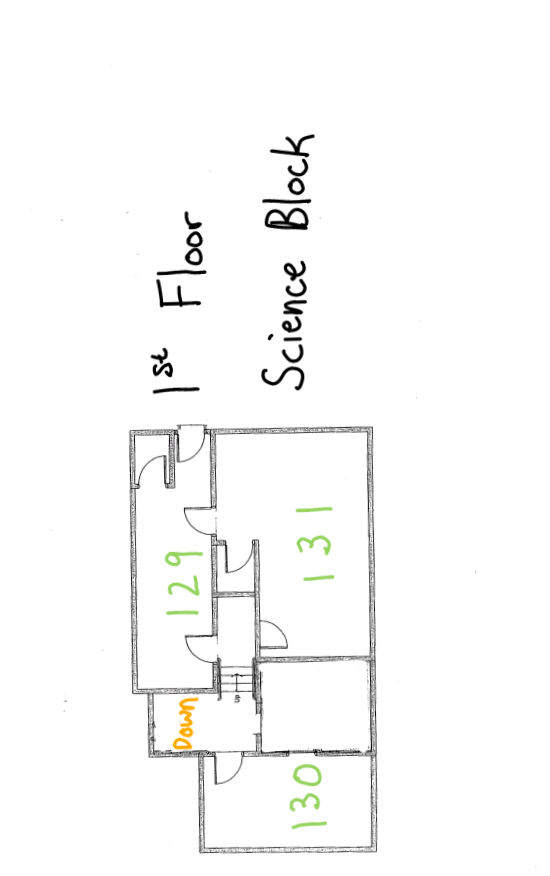 1st Floor
Science Block
129
131
Down
UP
130